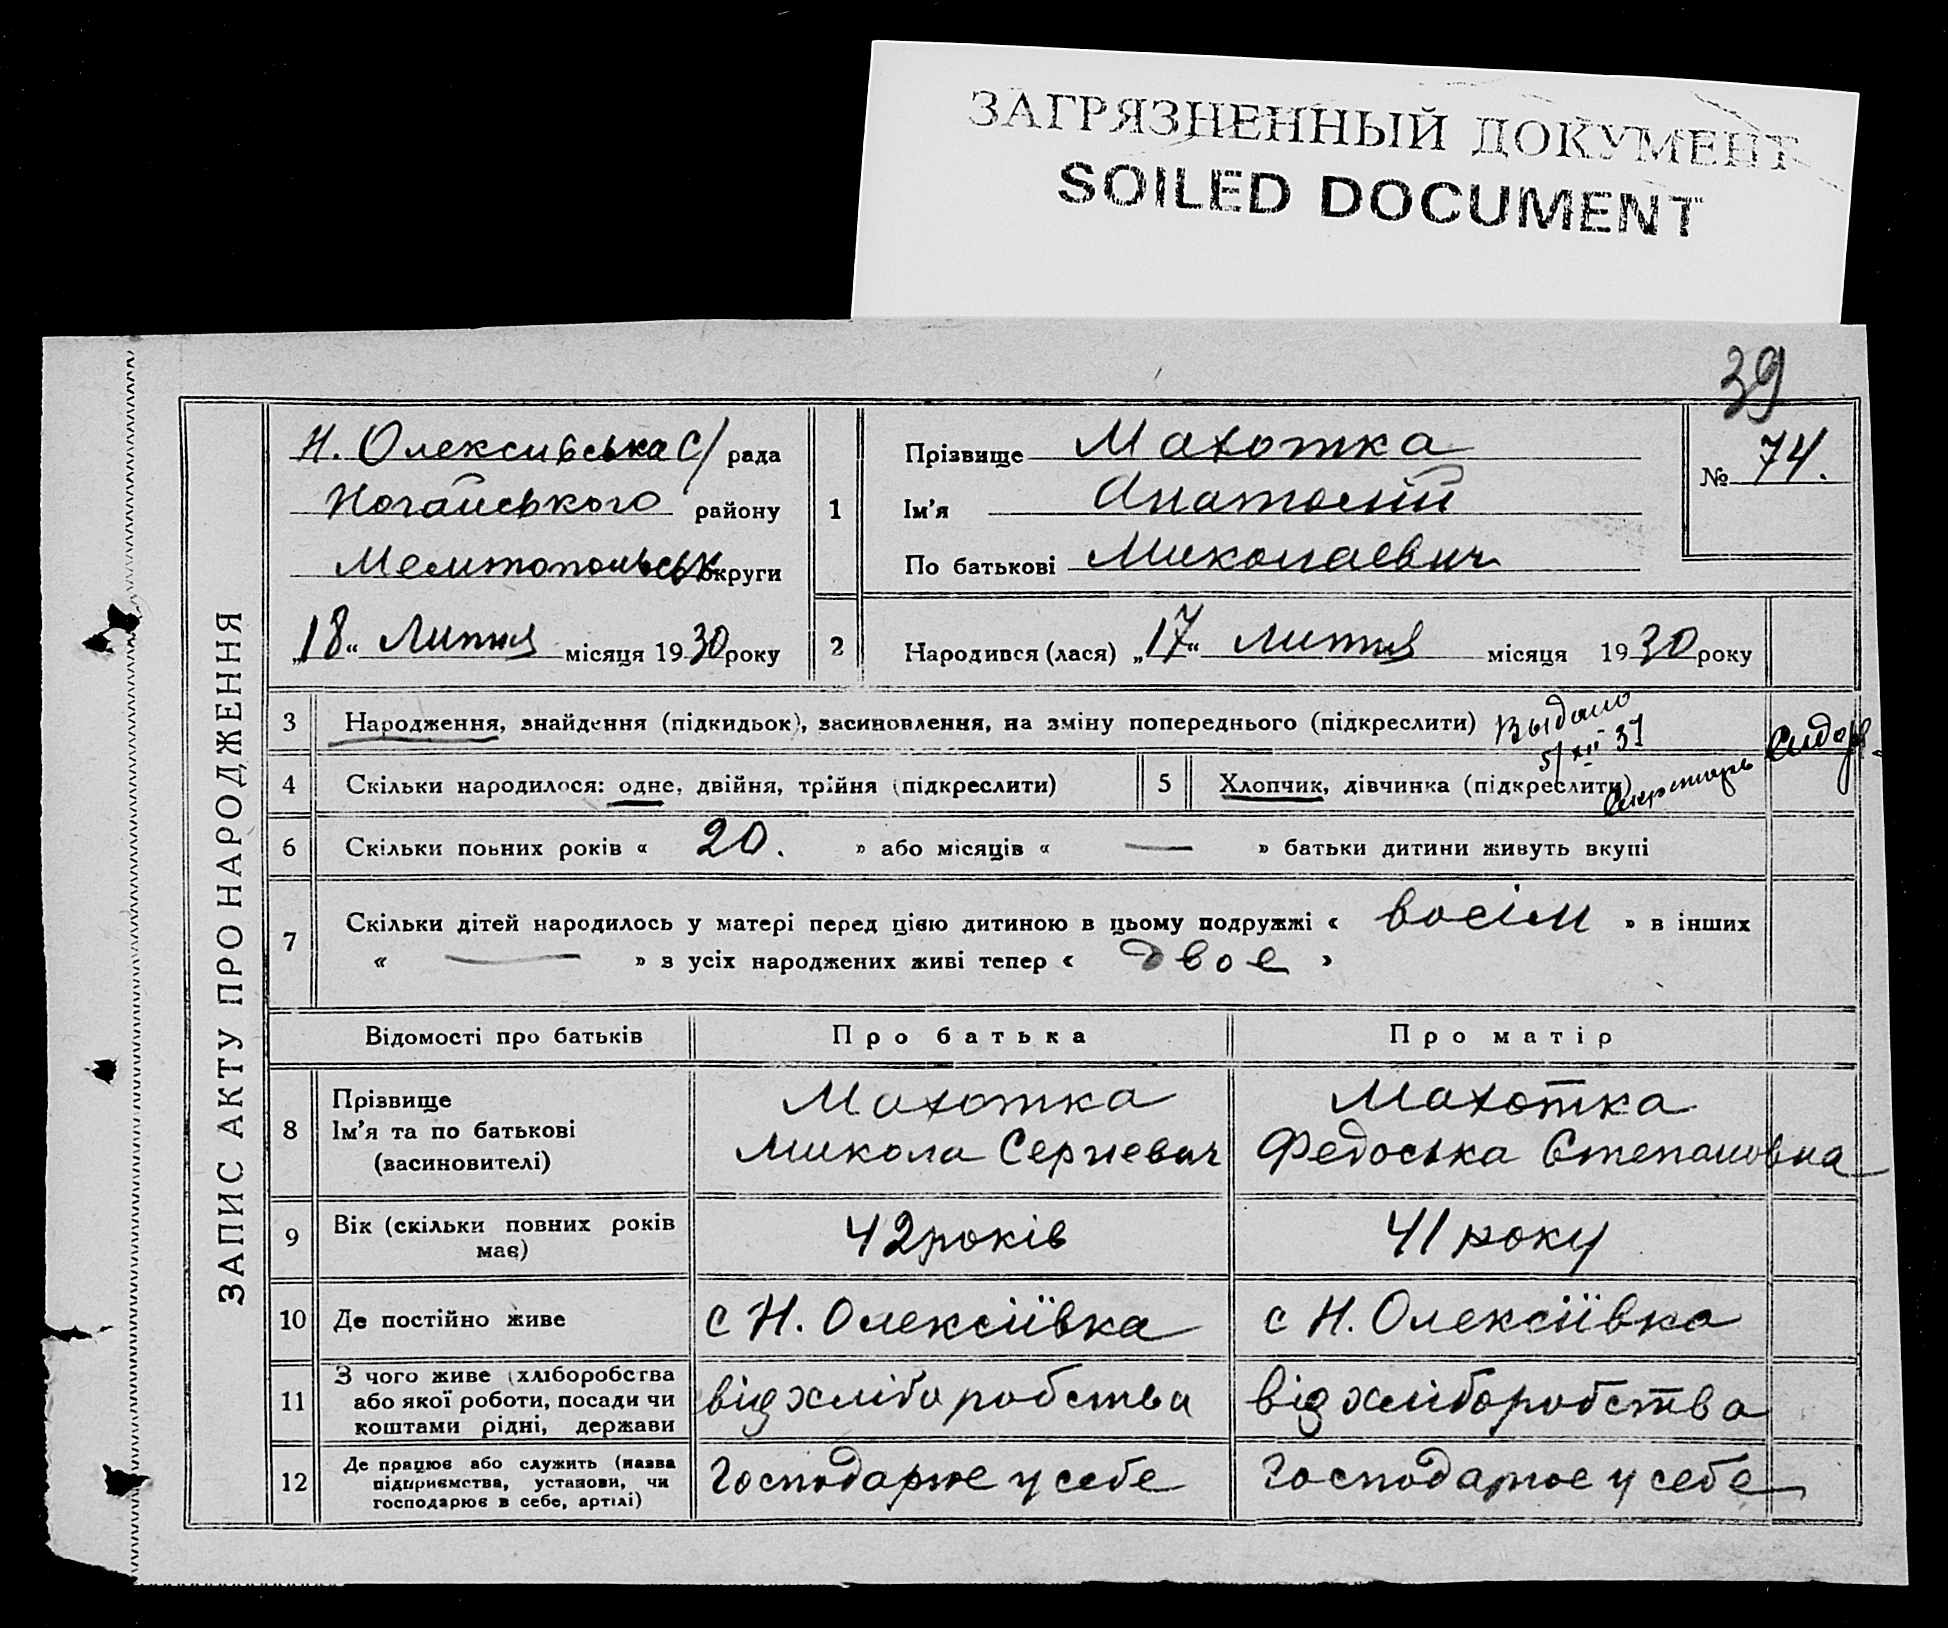 ЗАГРЯЗНЕННЫЙ ДОКУМЕНТ
SOILED DOCUMENT
39
ЗАПИС АКТУ ПРО НАРОДЖЕННЯ
Н. Олексивська с/ рада
Ногайського району
Мелитопольськ округи
„18“ Липня місяця 1930 року
1
Прізвище Махотка
Ім'я Анатолій
По батькові Миколаевич
№ 74.
2
Народився (лася) „17“ липня місяця 1930 року
3 Народження, знайдення (підкидьок), засиновлення, на зміну попереднього (підкреслити)
Выдано
5/XII 31
Секретарь
4 Скільки народилося: одне, двійня, трійня (підкреслити)
5 Хлопчик, дівчинка (підкреслити)
6 Скільки повних років « 20. » або місяців « — » батьки дитини живуть вкупі
7 Скільки дітей народилось у матері перед цією дитиною в цьому подружжі « восім » в інших
« — » з усіх народжених живі тепер « двое »
Відомості про батьків Про батька Про матір
8 Прізвище
Ім'я та по батькові
(засиновителі)
Махотка
Микола Сергиевич
Махотка
Федоська Степановна
9 Вік (скільки повних років
має)
42 років
41 року
10 Де постійно живе
с Н. Олексіївка
с Н. Олексіївка
11 З чого живе (хліборобства
або якої роботи, посади чи
коштами рідні, держави
від хліборобства
від хліборобства
12 Де працює або служить (назва
підприємства, установи, чи
господарює в себе, артілі)
Господарює у себе
Господарює у себе